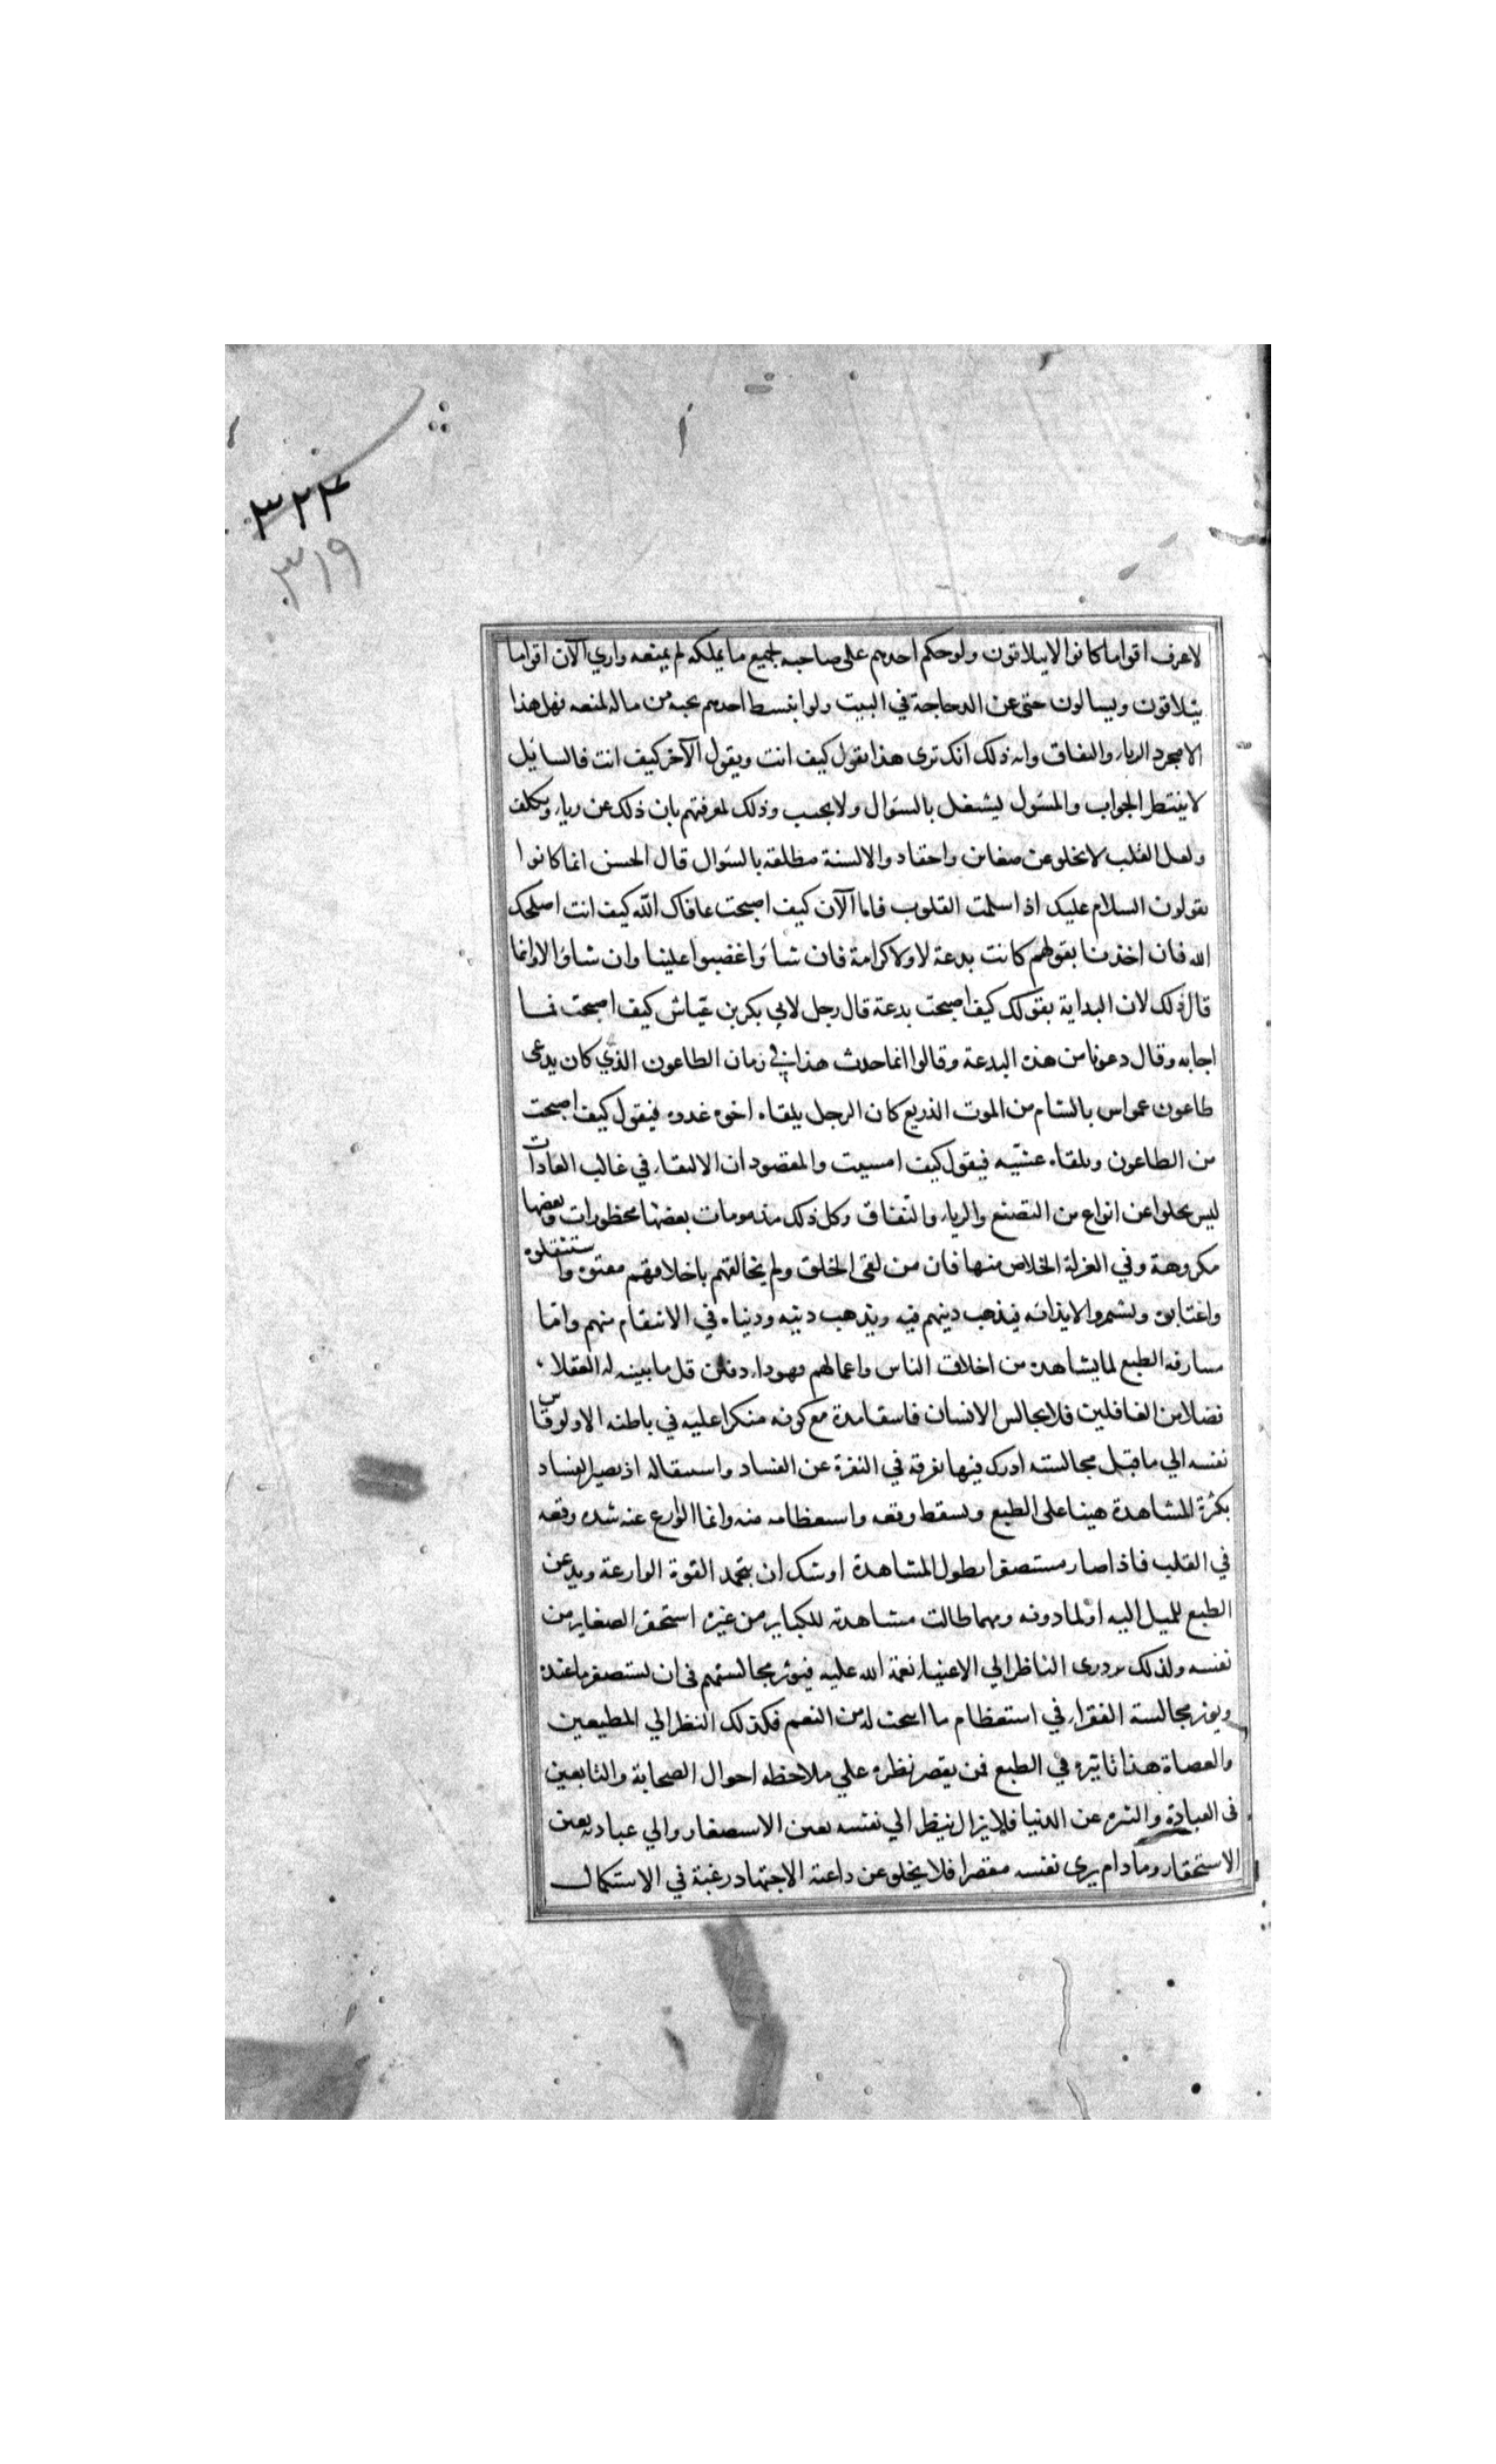 ٣٢٤
٣١٩
لاعرف اقواما كانوا لا يتلاقون ولو حكم احدهم على صاحبه بجميع ما يملكه لم يمنعه واري الآن اقواما
يتلاقون ويسالون حتى عن الدجاجة في البيت ولو انبسط احدهم بحبه من ماله لمنعه فهل هذا
الا مجرد الرياء والنفاق وانه ذلك انك ترى هذا يقول كيف انت ويقول الآخر كيف انت فالسايل
لا ينتظر الجواب والمسول يشتغل بالسوال ولا يجيب وذلك لمعرفتهم بان ذلك عن رياء وتكلف
ولعل القلب لا تخلو عن ضغاين واحقاد والالسنة مطلقه بالسوال قال الحسن انما كانوا
يقولون السلام عليك اذا سلمت القلوب فاما الآن كيف اصبحت عافاك الله كيف انت اصلحك
الله فان اخذنا بقولهم كانت بدعة لا ولا كرامة فان شاؤا غضبوا علينا وان شاؤا لا وانما
قال ذلك لان البداية بقولك كيف اصبحت بدعة قال رجل لابي بكر بن عيّاش كيف اصبحت فما
اجابه وقال دعونا من هذه البدعة وقالوا انما حدث هذا في زمان الطاعون الذي كان يدعى
طاعون عمواس بالشام من الموت الذريع كان الرجل يلقاه اخوه غدوه فيقول كيف اصبحت
من الطاعون ويلقاه عشيّه فيقول كيف امسيت والمقصود ان الالتقاء في غالب العادات
ليس يخلوا عن انواع من التصنع والرياء والنفاق وكل ذلك مذمومات بعضها محظورات وبعضها
مكروهة وفي العزلة الخلاص منها فان من لقى الخلق ولم يخالقهم باخلاقهم مقتوه واستثقلوه
واغتابوه وتشمروا لايذائه فيذهب دينهم فيه ويذهب دينه ودنياه في الانتقام منهم وامّا
مسارقه الطبع لما يشاهده من اخلاق الناس واعمالهم فهو داء دفين قل ما يتنبه له العقلاء
فضلا من الغافلين فلا يجالس الانسان فاسقا مدة مع كونه منكرا عليه في باطنه الا ولو قاس
نفسه الي ما قبل مجالسته ادرك فيها تفرقه في النفرة عن الفساد واستثقاله اذ يصير الفساد
بكثرة المشاهدة هينا على الطبع ويسقط وقعه واستعظامه منه وانما الوازع عنه شده وقعه
في القلب فاذا صار مستصغرا بطول المشاهدة اوشك ان يتحد القوة الوازعة ويذعن
الطبع للميل اليه او لما دونه ومهما طالت مشاهدته للكباير من غيره استحقر الصغاير من
نفسه ولذلك يزدري الناظر الي الاغنياء نعمة الله عليه فيوثر مجالستهم في ان يستصغر ما عنده
ويوثر مجالسة الفقراء في استعظام ما اتيحت له من النعم فكذلك النظر الي المطيعين
والعصاة هذا تاثيره في الطبع فمن يقصر نظره علي ملاحظه احوال الصحابة والتابعين
في العبادة والتنزه عن الدنيا فلا يزال ينظر الي نفسه بعين الاستصغار والي عبادته بعين
الاستحقار وما دام يرى نفسه مقصرا فلا يخلو عن داعية الاجتهاد رغبة في الاستكمال